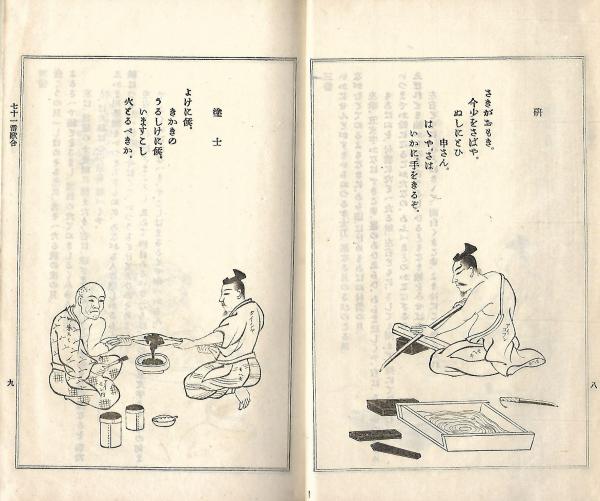 研
さきがおもき。
今少をさばや。
ぬしにとひ
申さん。
はゝや、さは
いかに手をきるぞ。
八
塗士
よげに候、
きかきの
うるしげに候、
いますこし
火どるべきか。
七十一番歌合
九